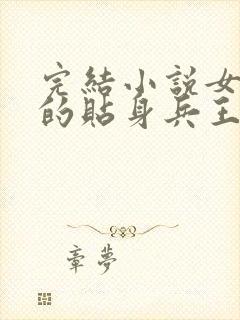 完結小說女
的貼身兵王
章夢